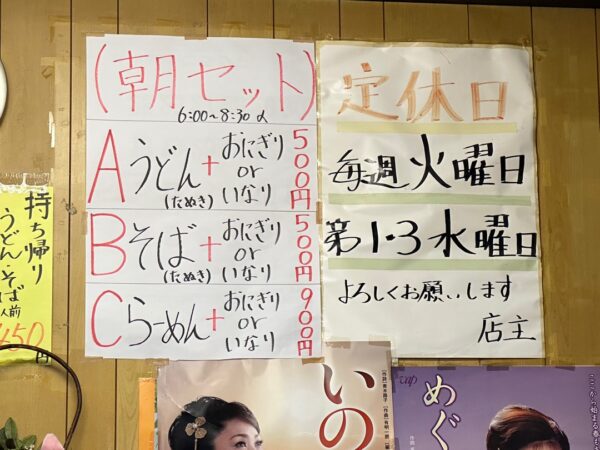 (朝セット)
6:00〜8:30
A うどん + おにぎり or いなり 500円
(たぬき)
B そば + おにぎり or いなり 500円
(たぬき)
C らーめん + おにぎり or いなり 900円
定休日
毎週火曜日
第1・3水曜日
よろしくお願いします
店主
持ち帰り
うどん・そば
人前
450円
いの
めぐ